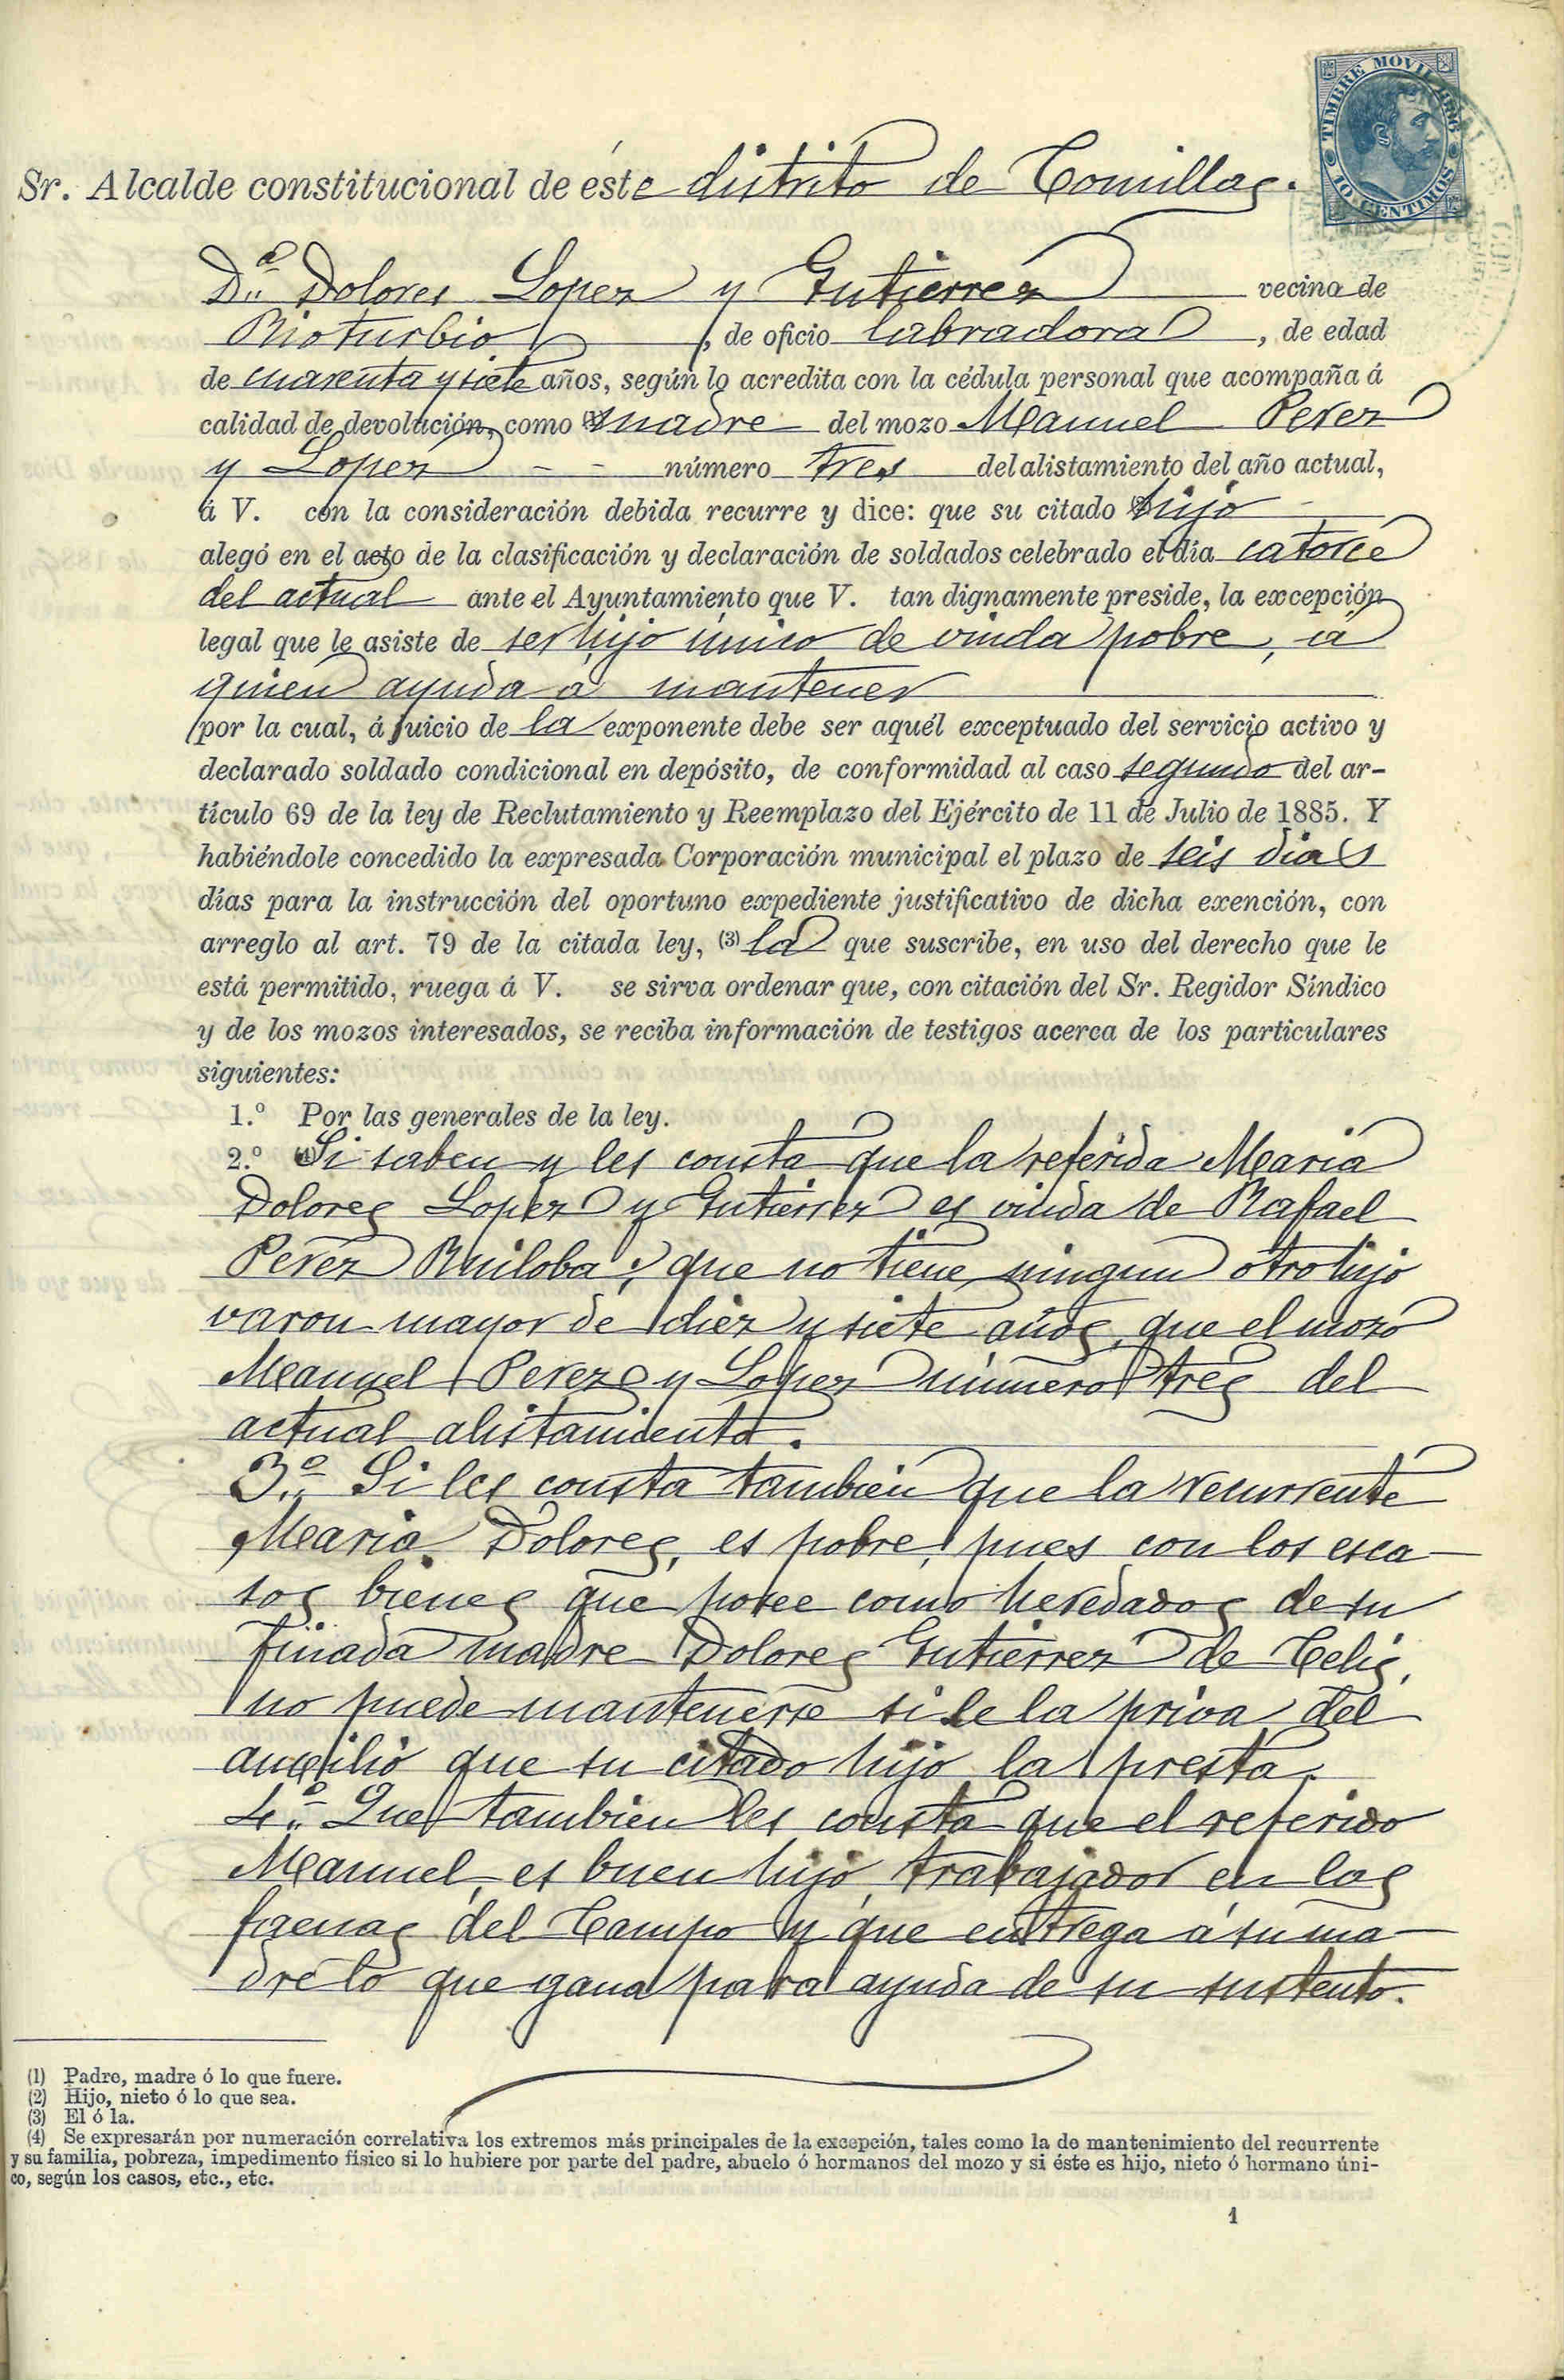 TIMBRE MOVIL 1886
10 CENTIMOS
Sr. Alcalde constitucional de éste distrito de Comillas.
D.ª Dolores Lopez y Gutierrez vecina de
Rioturbio, de oficio labradora, de edad
de cuarenta y siete años, según lo acredita con la cédula personal que acompaña á
calidad de devolución, como madre del mozo Manuel Perez
y Lopez - - número tres del alistamiento del año actual,
á V. con la consideración debida recurre y dice: que su citado hijo
alegó en el acto de la clasificación y declaración de soldados celebrado el día catorce
del actual ante el Ayuntamiento que V. tan dignamente preside, la excepción
legal que le asiste de ser hijo único de viuda pobre, á
quien ayuda a mantener
por la cual, á juicio de la exponente debe ser aquél exceptuado del servicio activo y
declarado soldado condicional en depósito, de conformidad al caso segundo del ar-
tículo 69 de la ley de Reclutamiento y Reemplazo del Ejército de 11 de Julio de 1885. Y
habiéndole concedido la expresada Corporación municipal el plazo de seis dias
días para la instrucción del oportuno expediente justificativo de dicha exención, con
arreglo al art. 79 de la citada ley, (3) la que suscribe, en uso del derecho que le
está permitido, ruega á V. se sirva ordenar que, con citación del Sr. Regidor Síndico
y de los mozos interesados, se reciba información de testigos acerca de los particulares
siguientes:
1.º Por las generales de la ley.
2.º (4) Si saben y les consta que la referida Maria
Dolores Lopez y Gutierrez es viuda de Rafael
Perez Ruiloba; que no tiene ningun otro hijo
varon mayor de diez y siete años, que el mozo
Manuel Perez y Lopez número tres del
actual alistamiento.
3.º Si les consta tambien que la recurrente
Maria Dolores, es pobre, pues con los esca-
sos bienes que posee como heredados de su
finada madre Dolores Gutierrez de Celis,
no puede mantenerse si se la priva del
auxilio que su citado hijo la presta.
4.º Que tambien les consta que el referido
Manuel, es buen hijo, trabajador en las
faenas del Campo y que entrega á su ma-
dre lo que gana para ayuda de su sustento.
(1) Padre, madre ó lo que fuere.
(2) Hijo, nieto ó lo que sea.
(3) El ó la.
(4) Se expresarán por numeración correlativa los extremos más principales de la excepción, tales como la de mantenimiento del recurrente
y su familia, pobreza, impedimento físico si lo hubiere por parte del padre, abuelo ó hermanos del mozo y si éste es hijo, nieto ó hermano úni-
co, según los casos, etc., etc.
1